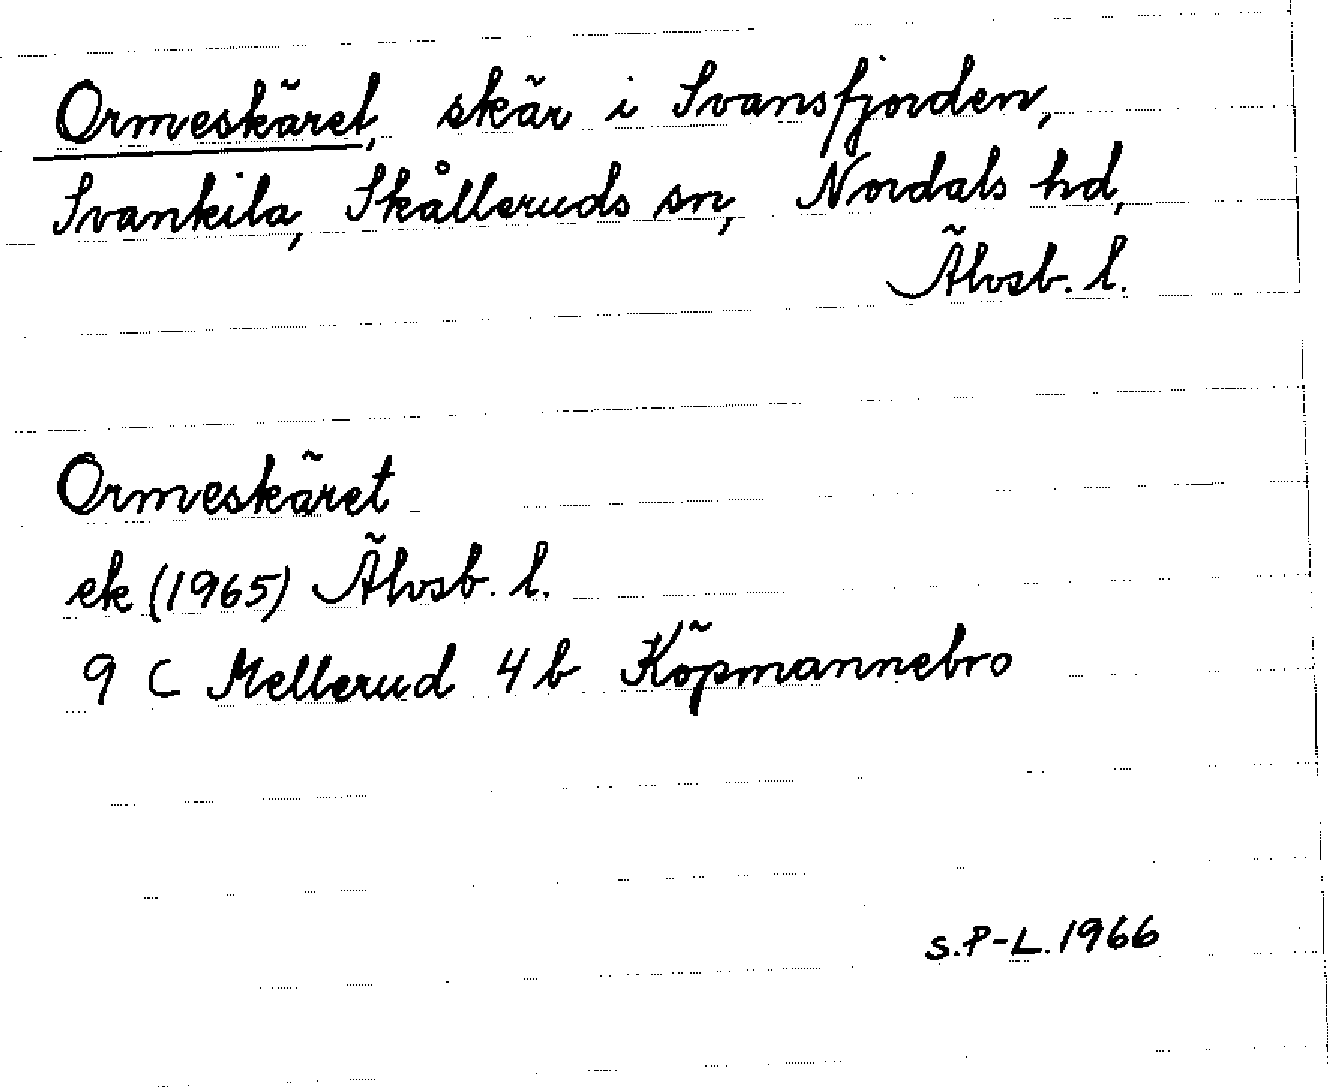 Ormeskäret, skär i Svansfjorden,
Svankila, Skålleruds sn, Nordals hd,
Älvsb. l.
Ormeskäret
ek (1965) Älvsb. l.
9 C Mellerud 4 b Köpmannebro
S.P-L. 1966